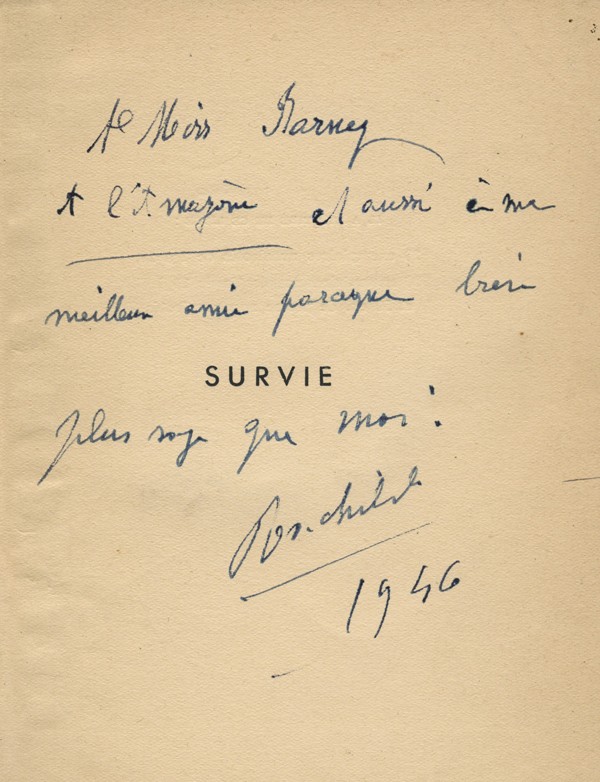 A Miss Barney
A l'Amazône et aussi à ma
meilleure amie parceque bien
SURVIE
plus sage que moi!
Rachilde
1946